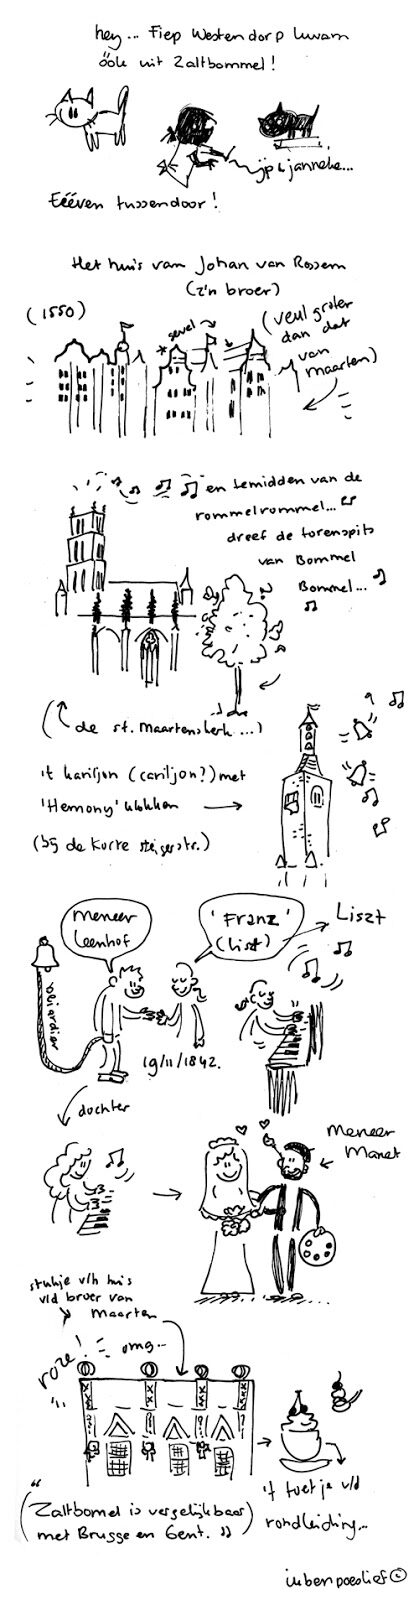 hey... Fiep Westendorp kwam
óók uit Zaltbommel!
jip & janneke...
Eééven tussendoor!
Het huis van Johan van Rossem
(z'n broer)
(1550)
(veul groter
dan dat
van
maarten)
* gevel
en temidden van de
rommelrommel...
dreef de torenspits
van Bommel
Bommel...
(de st. Maartenskerk...)
't kariljon (cariljon?) met
'Hemony' klokken
(bij de korte steigerstr.)
meneer
Leenhof
'Franz'
(Liszt)
Liszt
19/11/1842.
dochter
Meneer
Manet
stukje v/h huis
v/d broer van
maarten
roze!
omg...
"
(Zaltbomel is vergelijkbaar
met Brugge en Gent.")
't toetje v/d
rondleiding...
ikbenpoeslief ©